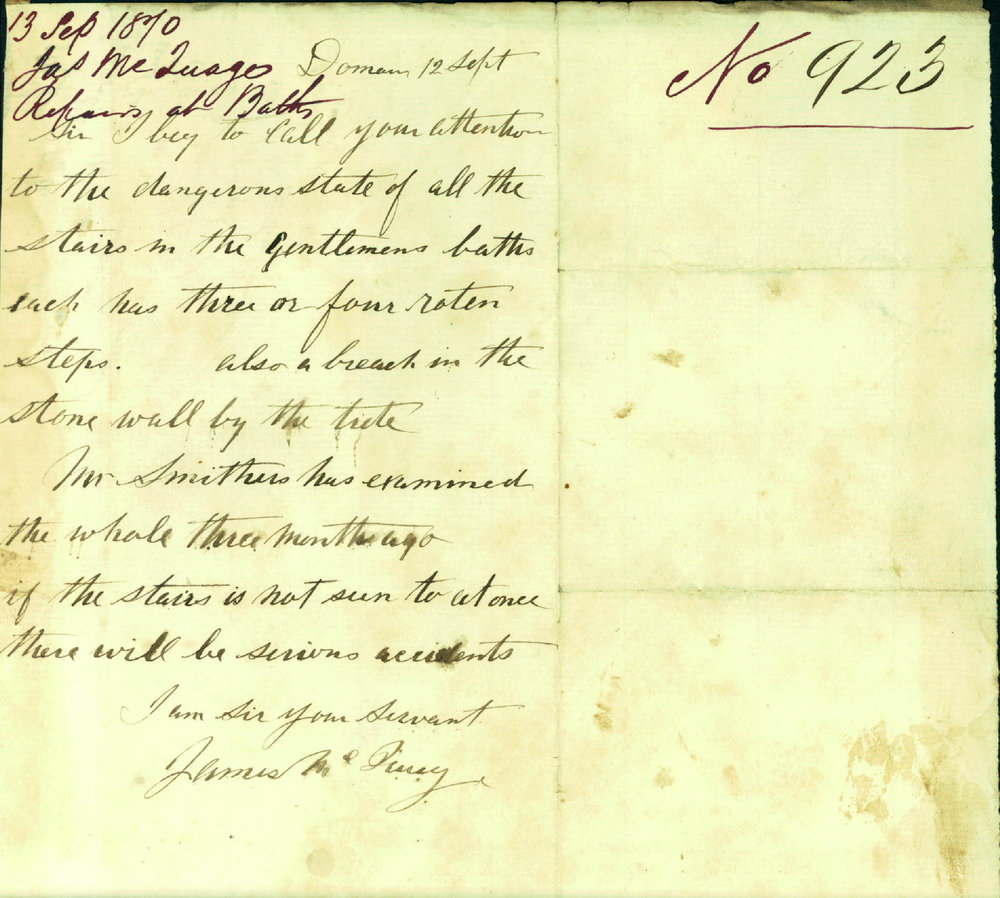 13 Sep 1870
Jas Mc Quage
Repairs at Baths
No 923
Domain 12 Sept
Sir I beg to Call your attention
to the dangerous state of all the
stairs in the Gentlemens baths
each has three or four roten
steps. also a breach in the
stone wall by the
Mr Smithers has examined
the whole three months ago
if the stairs is not seen to at once
there will be serious accidents
I am sir your servant
James Mc